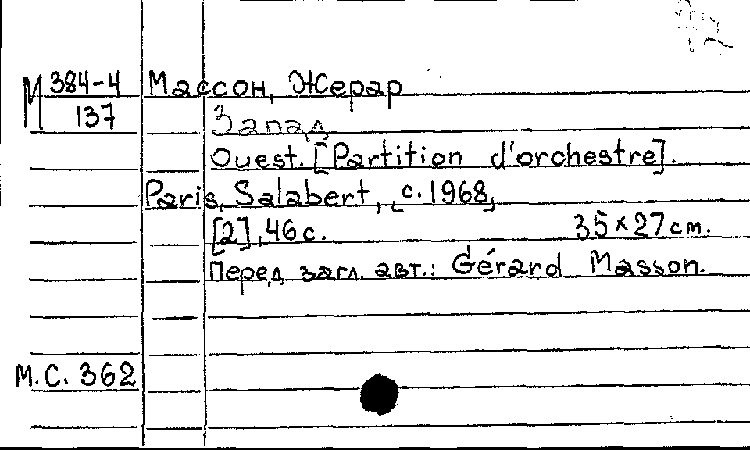 М 384-4 Массон, Жерар
137 Запад
Ouest. [Partition d'orchestre].
Paris, Salabert, [c. 1968]
[2], 46 с. 35×27 см.
Перед загл. авт.: Gérard Masson.
М.С. 362